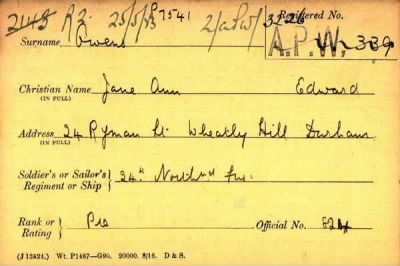 2145 R2. 25/5/33 P7541 2/APW/3226 Registered No.
Surname Owens A.P.W. 339
Christian Name Jane Ann Edward
(IN FULL)
Address 24 Ryman St. Wheatley Hill Durham.
(IN FULL)
Soldier's or Sailor's Regiment or Ship 24th Northd Fus.
Rank or Rating Pte Official No. 824
(J 13824.) Wt. P1487—G90. 20000. 8/16. D & S.